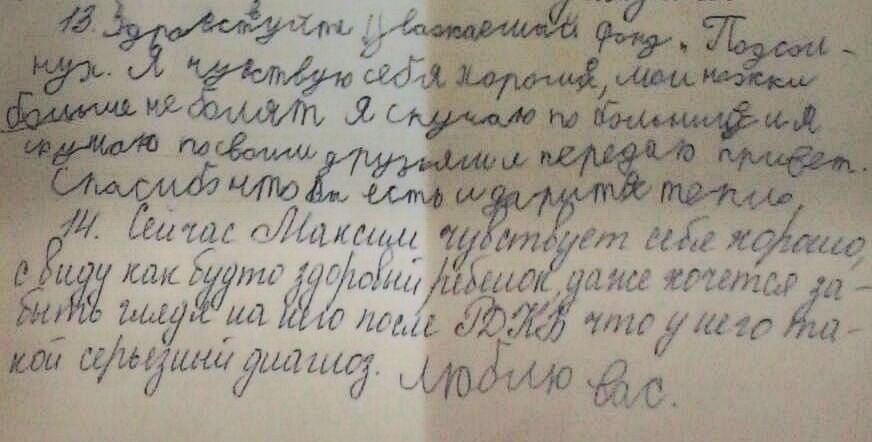 13. Здравствуйте Уважаемый фонд „Подсол-
нух. Я чувствую себя хорошо, мои ножки
больше не болят Я скучаю по больнице и я
скучаю по своим друзьям и передаю привет.
Спасибо что вы есть и дарите тепло.
14. Сейчас Максим чувствует себя хорошо,
с виду как будто здоровый ребенок, даже хочется за-
быть глядя на него после РДКБ что у него та-
кой серьезный диагноз. Люблю вас.